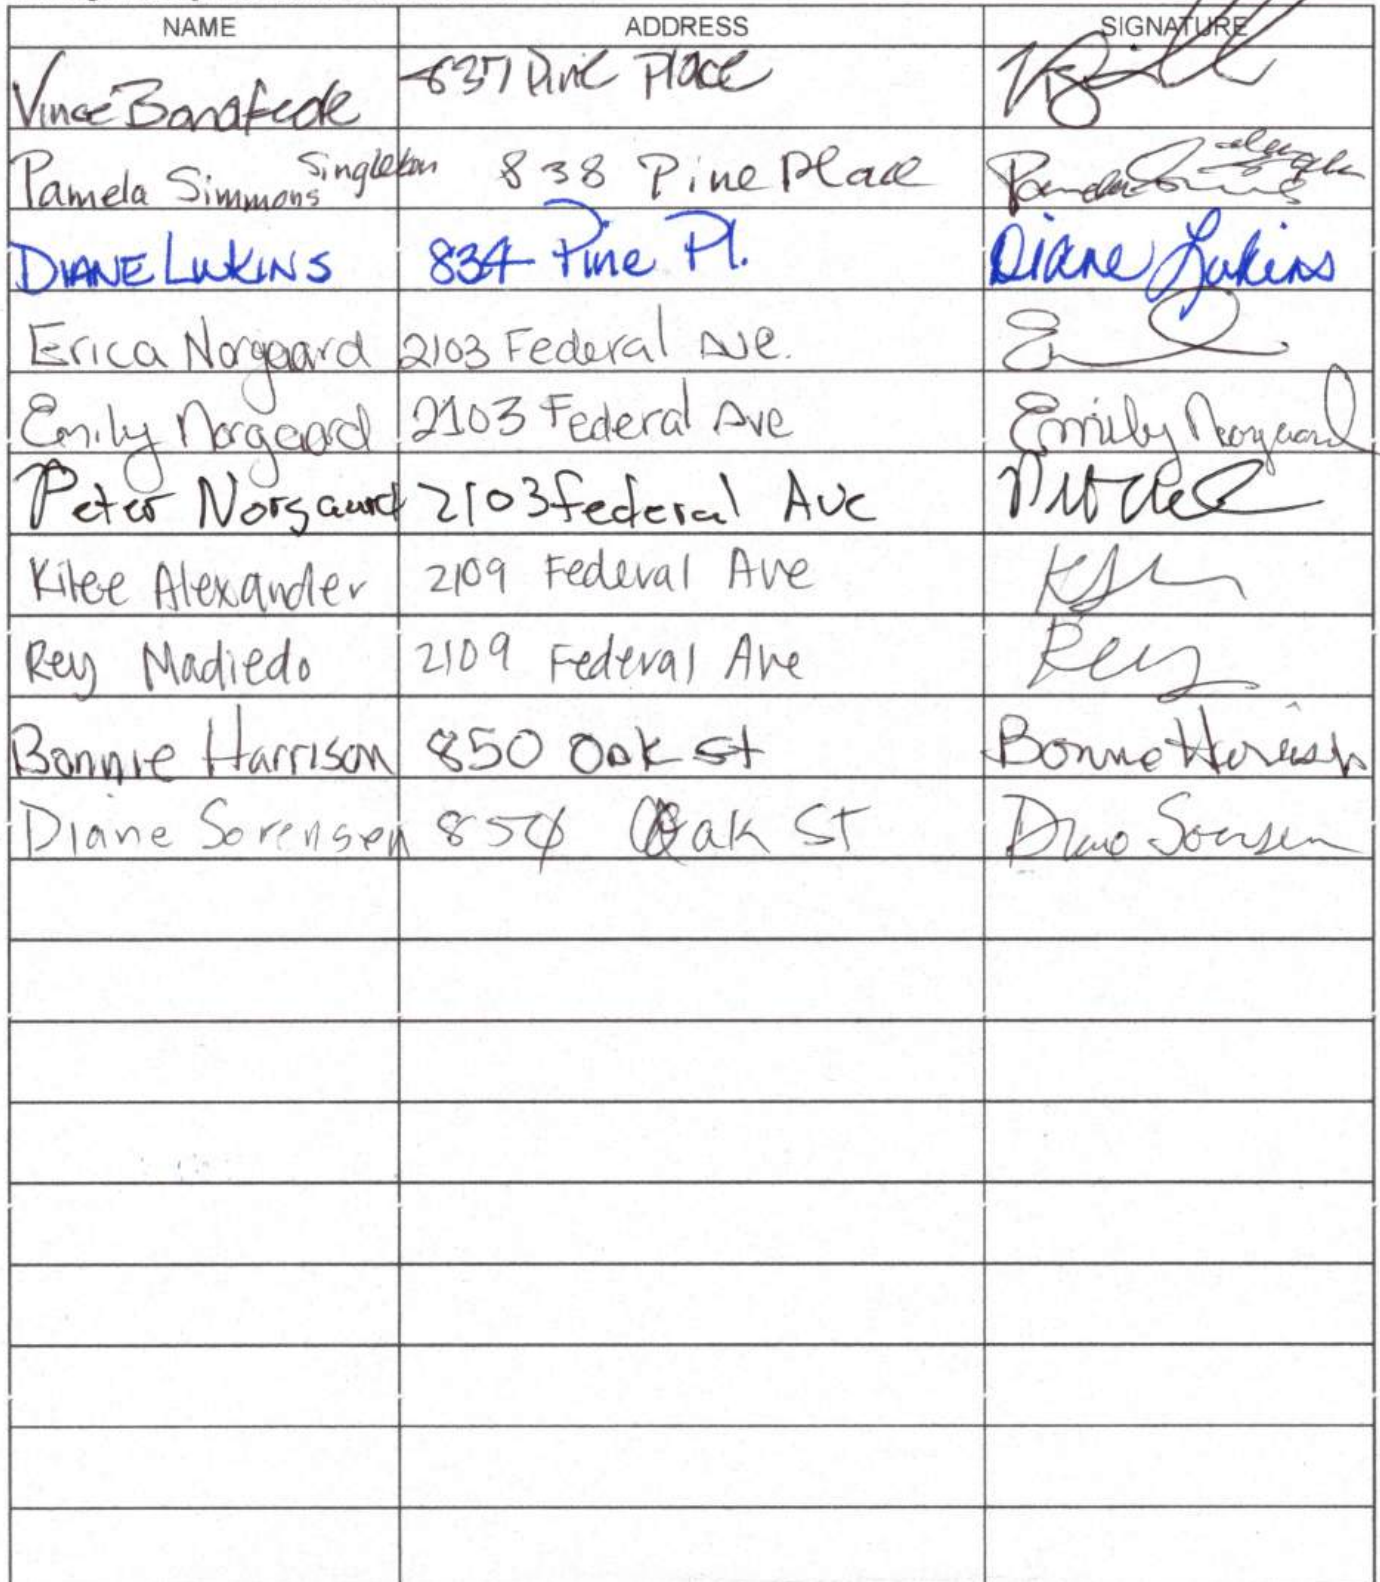 NAME ADDRESS SIGNATURE
Vince Bonafede 837 Pine Place
Pamela Simmons Singleton 838 Pine Place Pamela
DIANE LUKINS 834 Pine Pl. Diane Lukins
Erica Norgaard 2103 Federal Ave.
Emily Norgaard 2103 Federal Ave Emily Norgaard
Peter Norgaard 2103 Federal Ave
Kilee Alexander 2109 Federal Ave
Rey Madiedo 2109 Federal Ave Rey
Bonnie Harrison 850 Oak St Bonnie Harrison
Diane Sorensen 850 Oak St Diane Sorensen